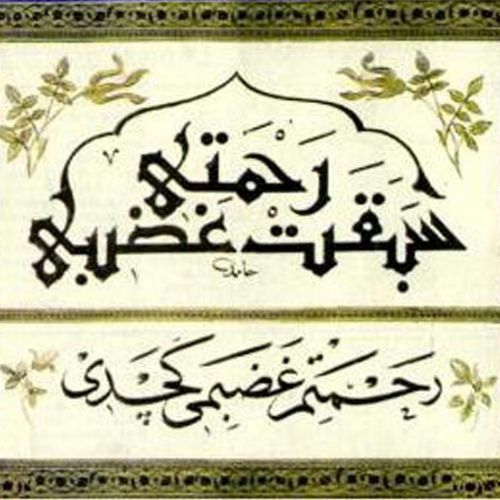 رَحْمَتِي
سَبَقَتْ غَضَبِي
حامد
رَحْمَتِمْ غَضَبِمِى كَچْدِى